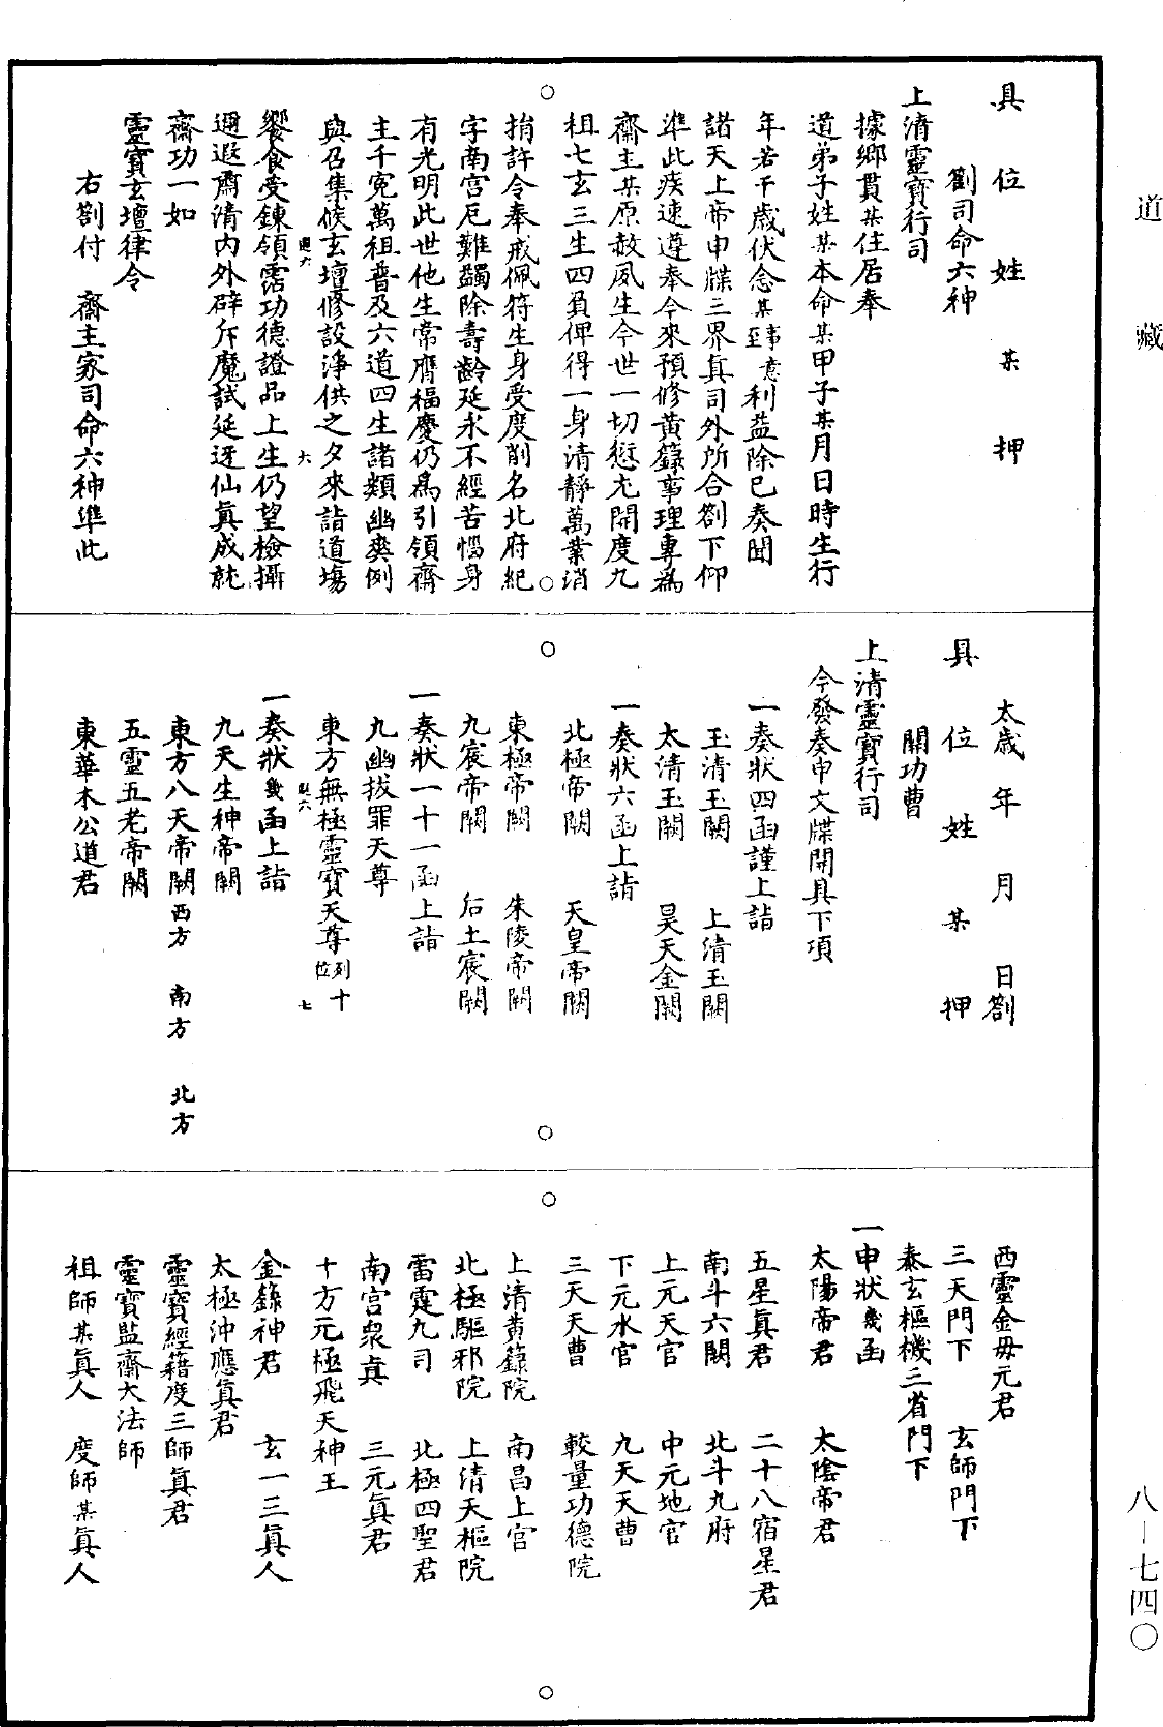 道藏
具位姓某押
劄司命六神
上清靈寶行司
據鄉貫某住居奉
道弟子姓某本命某甲子某月日時生行
年若干歲伏念某事至意利益除已奏聞
諸天上帝申牒三界真司外所合劄下仰
準此疾速遵奉今來預修黃籙事理專為
齋主某原赦夙生今世一切愆尤開度九
祖七玄三生四負俾得一身清靜萬業消
捐許令奉戒佩符生身受度削名北府紀
字南宮厄難蠲除壽齡延永不經苦惱身
有光明此世他生常膺福慶仍為引領齋
主千冤萬祖普及六道四生諸類幽爽例
與召集候玄壇修設淨供之夕來詣道場
饗食受鍊領霑功德證品上生仍望檢攝
邇遐齋清內外辟斥魔試延迓仙真成就
齋功一如
靈寶玄壇律令
右劄付 齋主家司命六神準此
太歲年月日劄
具位姓某押
關功曹
上清靈寶行司
今發奏申文牒開具下項
一奏狀四函謹上詣
玉清玉闕 上清玉闕
太清玉闕 昊天金闕
一奏狀六函上詣
北極帝闕 天皇帝闕
東極帝闕 朱陵帝闕
九宸帝闕 后土宸闕
一奏狀一十一函上詣
九幽拔罪天尊
東方無極靈寶天尊列十位
一奏狀幾函上詣
九天生神帝闕
東方八天帝闕西方 南方 北方
五靈五老帝闕
東華木公道君
西靈金母元君
三天門下 玄師門下
泰玄樞機三省門下
一申狀幾函
太陽帝君 太陰帝君
五星真君 二十八宿星君
南斗六闕 北斗九府
上元天官 中元地官
下元水官 九天天曹
三天天曹 較量功德院
上清黃籙院 南昌上宮
北極驅邪院 上清天樞院
雷霆九司 北極四聖君
南宮眾真 三元真君
十方元極飛天神王
金籙神君 玄一三真人
太極沖應真君
靈寶經籍度三師真君
靈寶監齋大法師
祖師某真人 度師某真人
八—七四〇